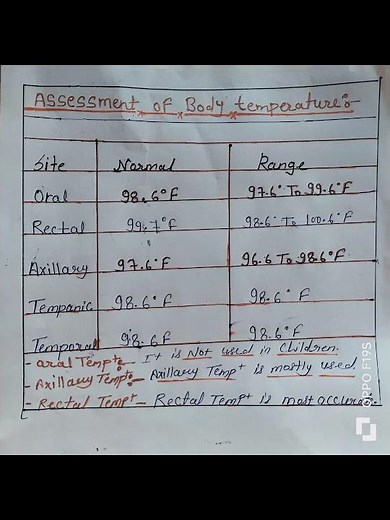 Assessment of Body temperature:-
Site Normal Range
Oral 98.6°F 97.6° To 99.6°F
Rectal 99.7°F 98.6° To 100.6°F
Axillary 97.6°F 96.6 To 98.6°F
Tempanic 98.6°F 98.6°F
Temporal 98.6F 98.6°F
- oral Temp It is Not used in Children.
- Axillary Temp:- Axillary Temp is mostly used.
- Rectal Temp - Rectal Temp is most accurate.
OPPO F19S